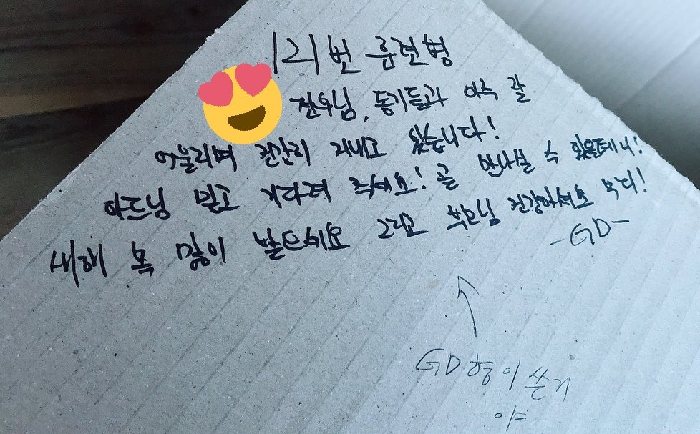 121번 훈련병
전우님, 동기들과 아주 잘
어울리며 건강히 지내고 있습니다!
아드님 믿고 기다려 주세요! 곧 만나실 수 있을테니!
새해 복 많이 받으세요 그리고 부모님 건강하세요 부디!
-GD-
GD형이 쓴거
야